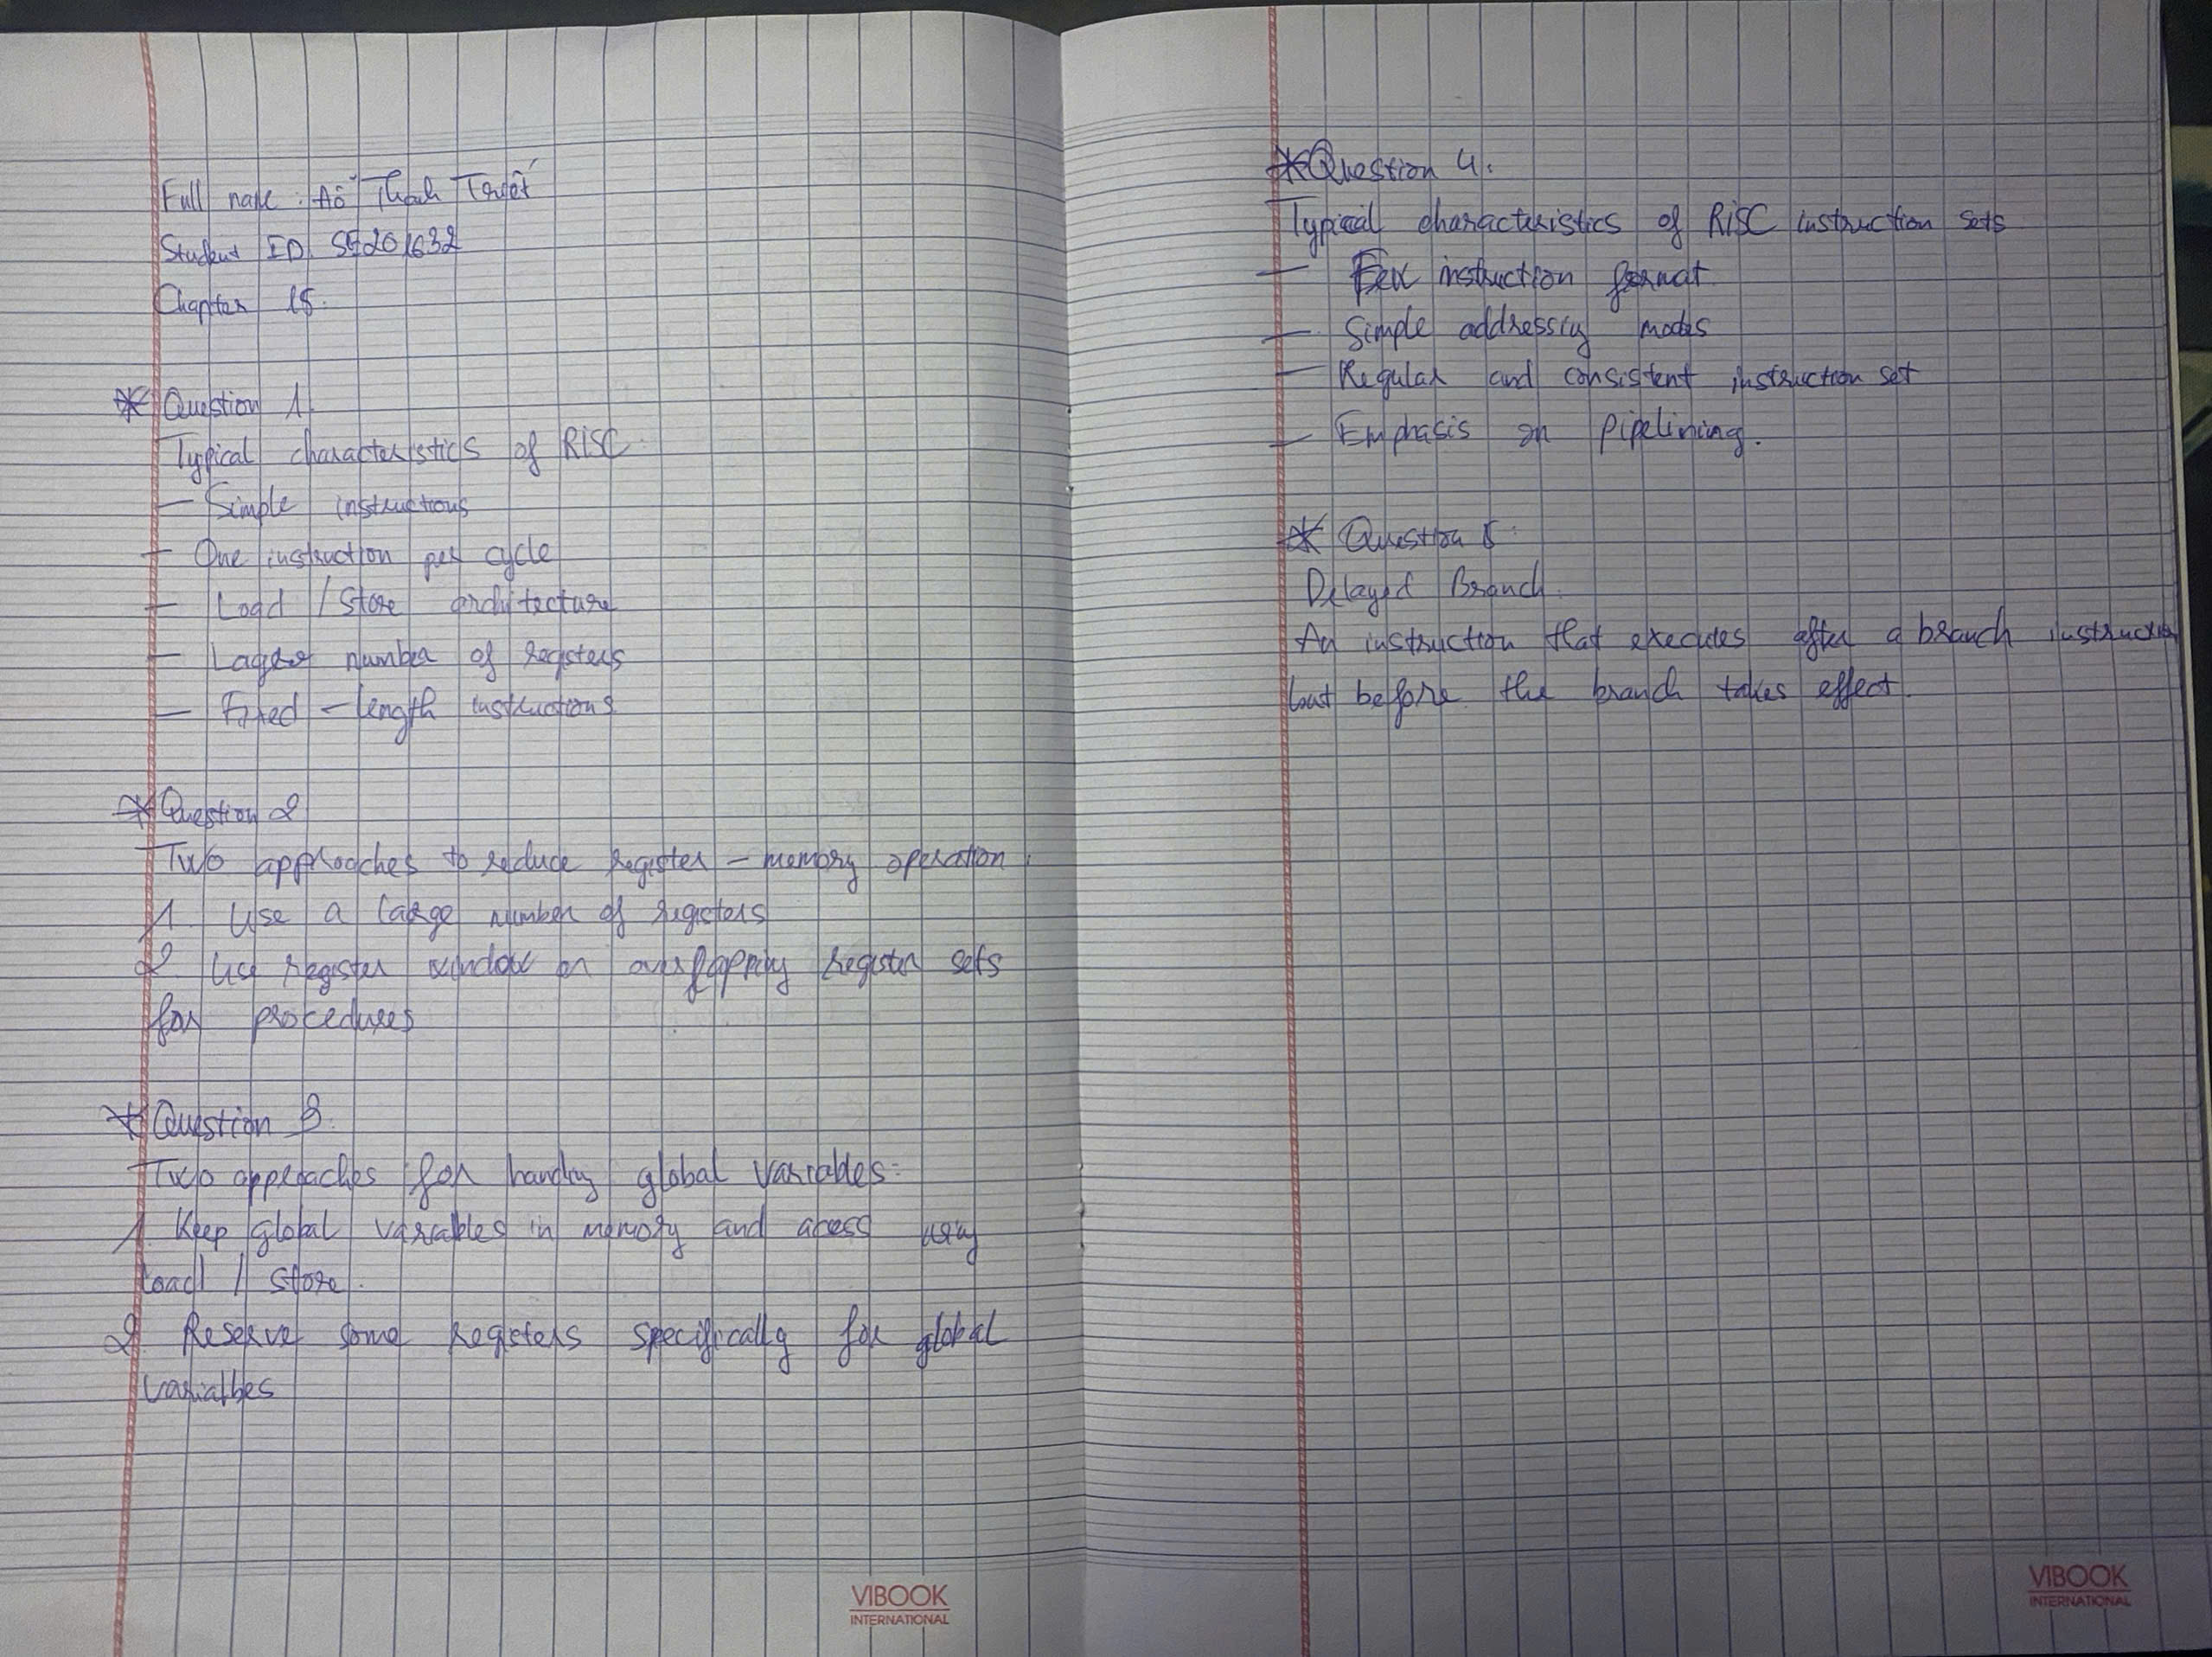 Full name: Thanh
Student ID SE201632
Chapter 15.
* Question 1.
Typical characteristics of RISC:
- Simple instructions
- One instruction per cycle
- Load / Store architecture
- number of registers
- Fixed - length instructions
* Question 2
Two approaches to reduce register - memory operation:
1. Use a large number of registers
2. Use register window or overlapping register sets
for procedures
* Question 3.
Two approaches for handing global variables:
1. Keep global variables in memory and acess using
load / store.
2. Reserve some registers specifically for global
varialbes
* Question 4:
Typical characteristics of RISC instruction sets
- Few instruction format
- Simple addressing modes
- Regular and consistent instruction set
- Emphasis on pipelining.
* Question 5:
Delayed Branch.
An instruction that executes after a branch instruction
but before the branch takes effect.
VIBOOK
INTERNATIONAL
VIBOOK
INTERNATIONAL